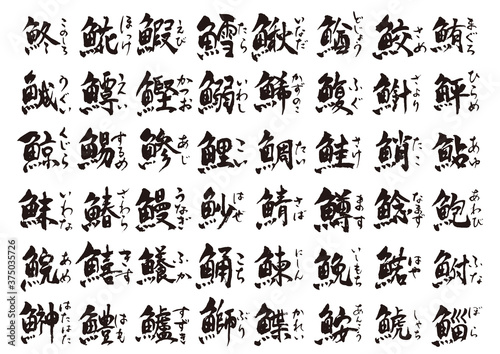 鮗 このしろ 𩸽 ほっけ 鰕 えび 鱈 たら 鰍 いなだ 鰌 どじょう 鮫 さめ 鮪 まぐろ
鯎 うぐい 鱏 えい 鰹 かつお 鰯 いわし 鯑 かずのこ 鰒 ふぐ さより 鮃 ひらめ
鯨 くじら 鯣 するめ 鯵 あじ 鯉 こい 鯛 たい 鮭 さけ 鮹 たこ 鮎 あゆ
鮇 いわな 鰆 さわら 鰻 うなぎ 魦 はぜ 鯖 さば 鱒 ます 鯰 なまず 鮑 あわび
鯇 あめ 鱚 きす 鱶 ふか 鯒 こち 鰊 にしん 鮸 いしもち はや 鮒 ふな
鰰 はたはた 鱧 はも 鱸 すずき 鰤 ぶり 鰈 かれい 鮟 あんこう 鯱 しゃち 鯔 ぼら
Adobe Stock | #375035726